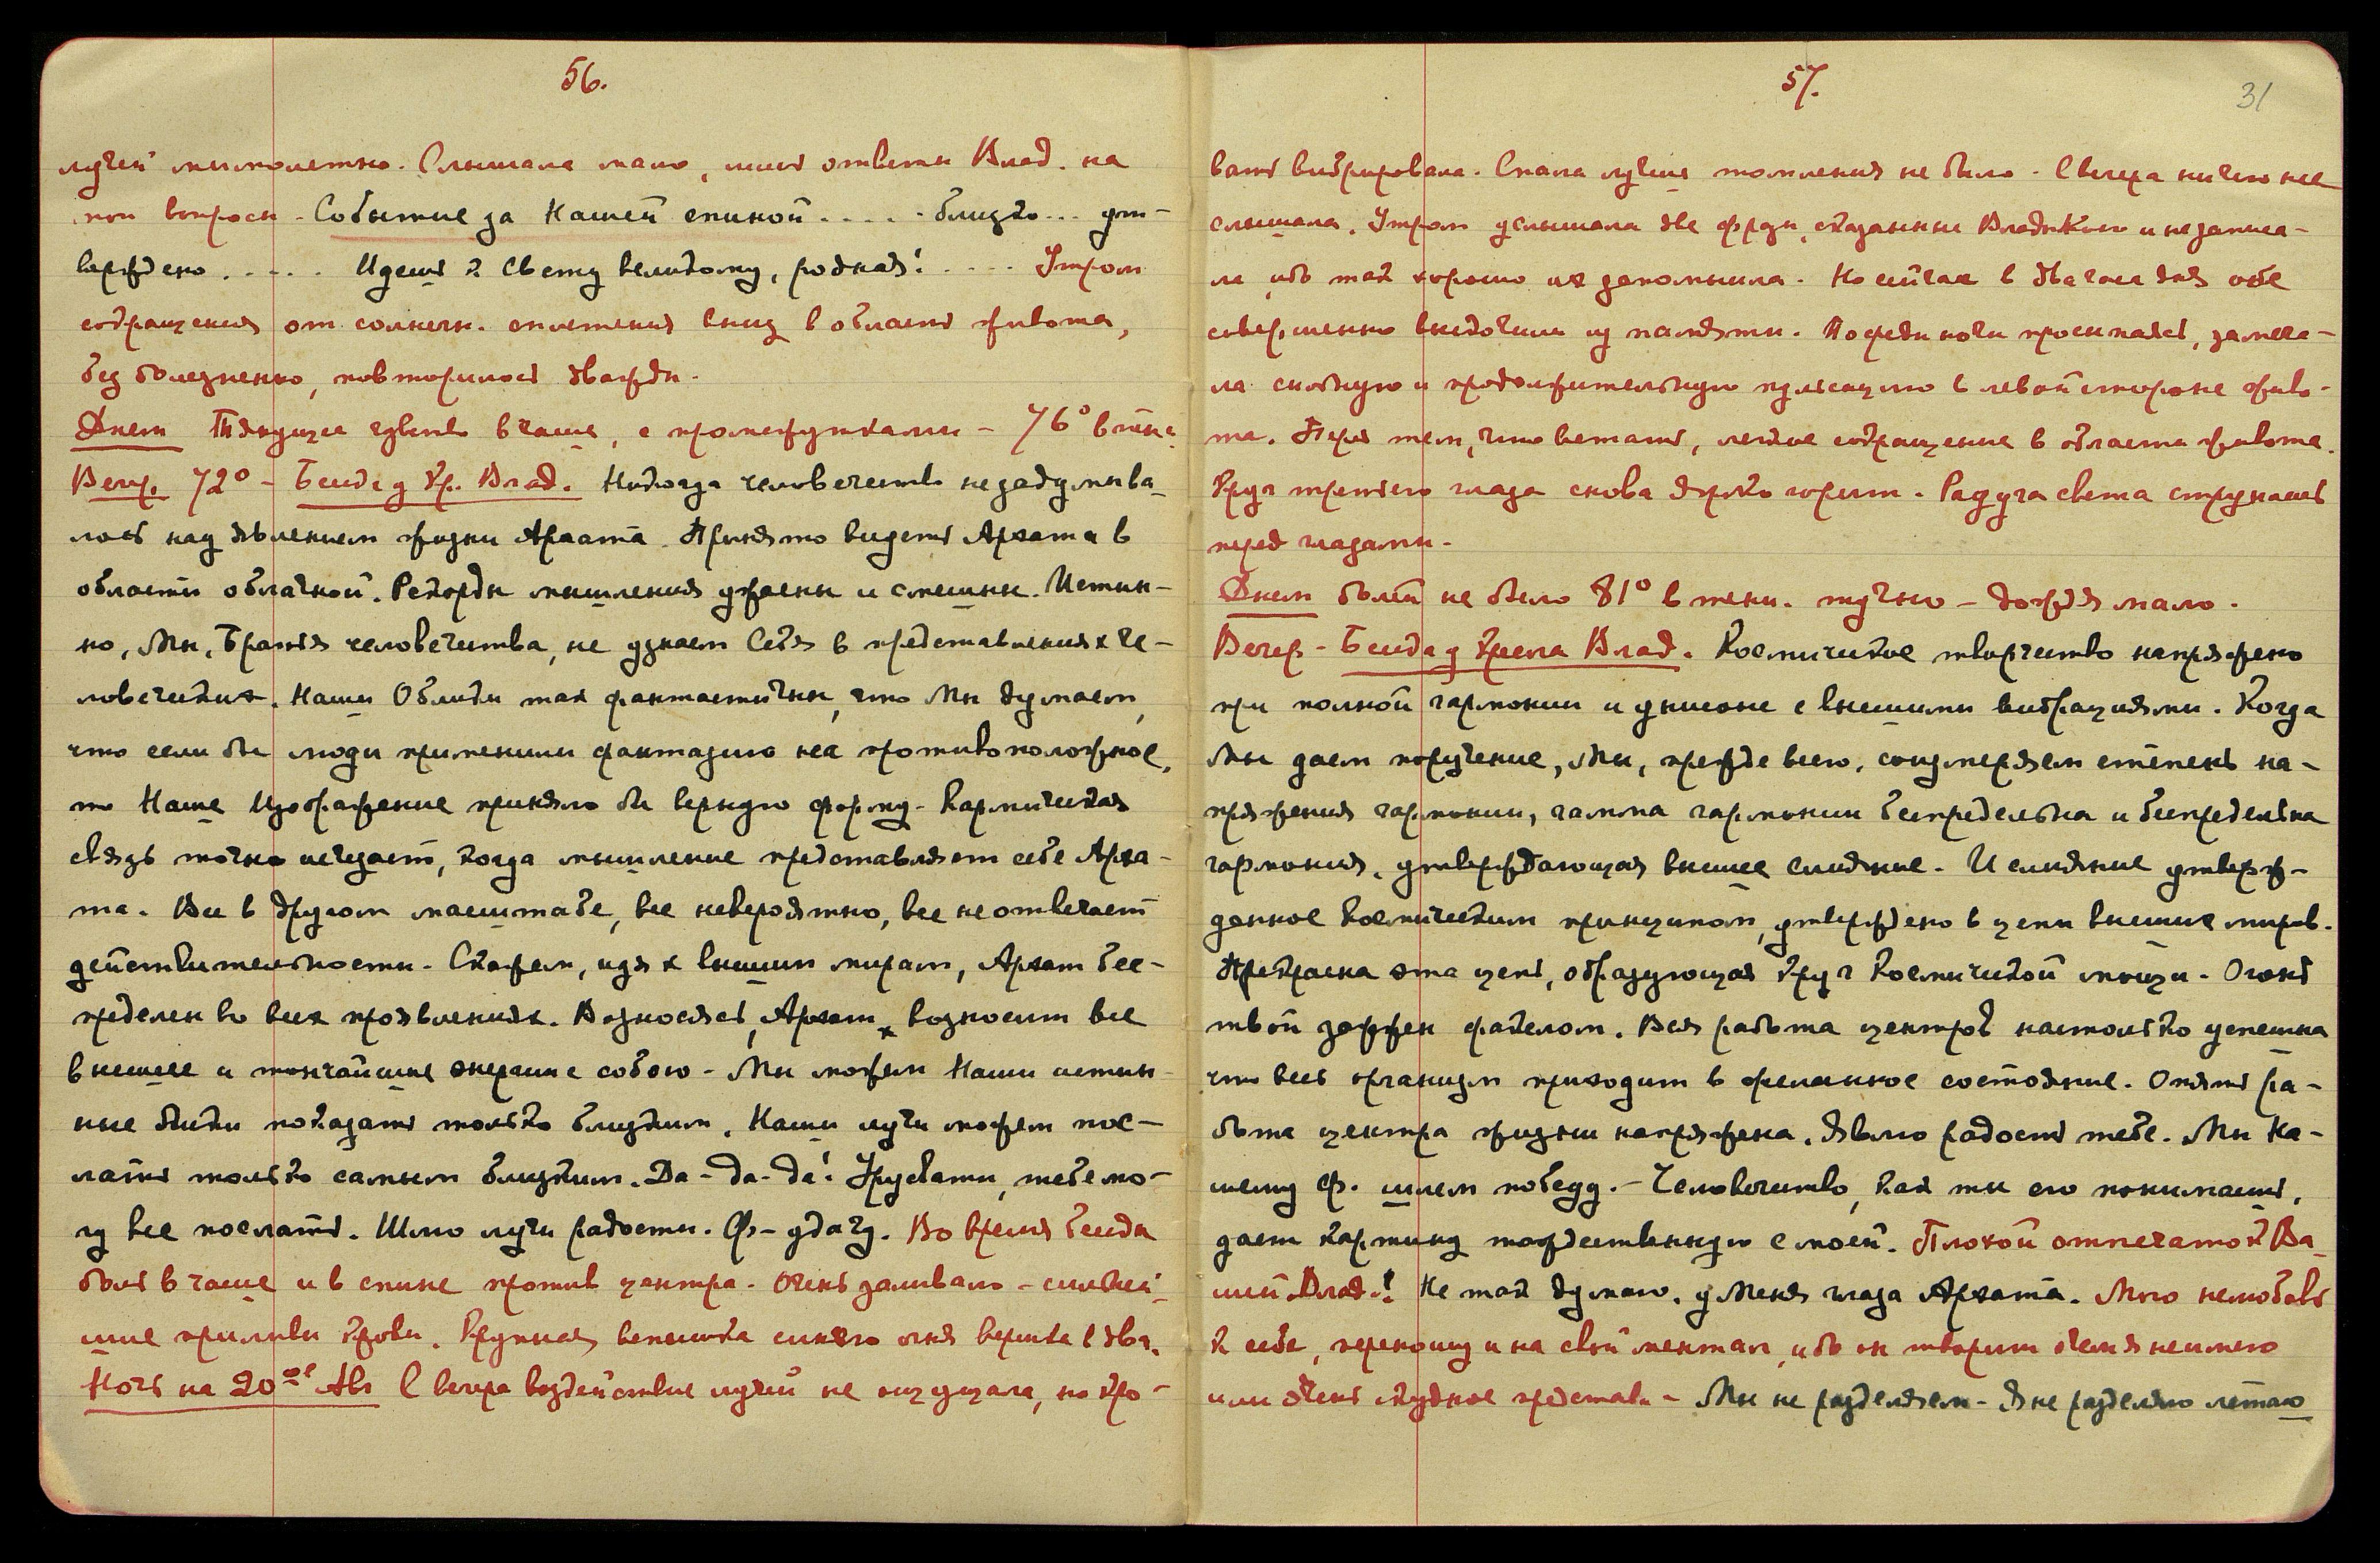 56.
лучей мимолетно. Слышала мало, лишь ответы Влад. на
мои вопросы. Событие за Нашей спиной..... близко... ут-
верждено..... Идешь к свету великому, родная!.... Утром
сокращения от солнечн. сплетения вниз в области живота,
безболезненно, повторилось дважды.
Днем Тянущее чувство в чаше, с промежутками – 76° в тени.
Вечер. 72° – Беседа у Кр. Влад. Никогда человечество не задумыва-
лось над явлением жизни Архата. Принято видеть Архата в
области облачной. Рекорды мышления ужасны и смешны. Истин-
но, Мы, Братья человечества, не узнаем Себя в представлениях че-
ловеческих. Наши Облики так фантастичны, что Мы думаем,
что если бы люди применили фантазию на противоположное,
то Наше Изображение приняло бы верную форму. Кармическая
связь точно исчезает, когда мышление представляет себе Арха-
та. Все в другом масштабе, все невероятно, все не отвечает
действительности. Скажем, идя к высшим мирам, Архат бес-
пределен во всех проявлениях. Возносясь, Архат возносит все
высшее и тончайшие энергии с собою. Мы можем Наши истин-
ные облики показать только близким. Наши лучи можем пос-
лать только самым близким. Да-да-да! Урусвати, тебе мо-
гу все послать. Шлю лучи радости. Ф – удачу. Во время беседы
боль в чаше и в спине против центра. Очень заливало – сильней-
шие приливы крови. Крупная вспышка синяго огня вершка в два.
Ночь на 20ое Авг С вечера воздействие лучей не ощущала, но кро-
57.
31
вать вибрировала. Спала лучше томления не было. С вечера ничего не
слышала. Утром услышала две фразы, сказанные Владыкою и не записа-
ла, ибо так хорошо их запомнила. Но сейчас в два часа дня обе
совершенно выскочили из памяти. Посреди ночи просыпаясь, замеча-
ла сильную и продолжительную пульсацию в левой стороне живо-
та. Перед тем, что встать, легкое сокращение в области живота.
Круг третьего глаза снова ярко горит. Радуга света струилась
перед глазами.
Днем болей не было 81° в тени. тучно – дождя мало.
Вечер – Беседа у Кресла Влад. Космическое творчество напряжено
при полной гармонии и унисоне с высшими вибрациями. Когда
Мы даем поручение, Мы, прежде всего, соизмеряем степень на-
пряжения гармонии, гамма гармонии беспредельна и беспредельна
гармония, утверждающая высшее слияние. И слияние утверж-
данное Космическим принципом, утверждено в цепи высших миров.
Прекрасна эта цепь, образующая круг Космической мощи. Огонь
твой зажжен факелом. Вся работа центров настолько успешна
что весь организм приходит в желанное состояние. Опять ра-
бота центра жизни напряжена. Явлю радость тебе. Мы На-
шему Ф. шлем победу. – Человечество, как ты его понимаешь,
дает картину тождественную с моей. Плохой отпечаток Ва-
ший Влад.! Не так думаю, у Меня глаза Архата. Мою нелюбовь
к себе, переношу и на свой ментал, ибо он творит
или очень скудное представ. – Мы не разделяем – Я не разделяю